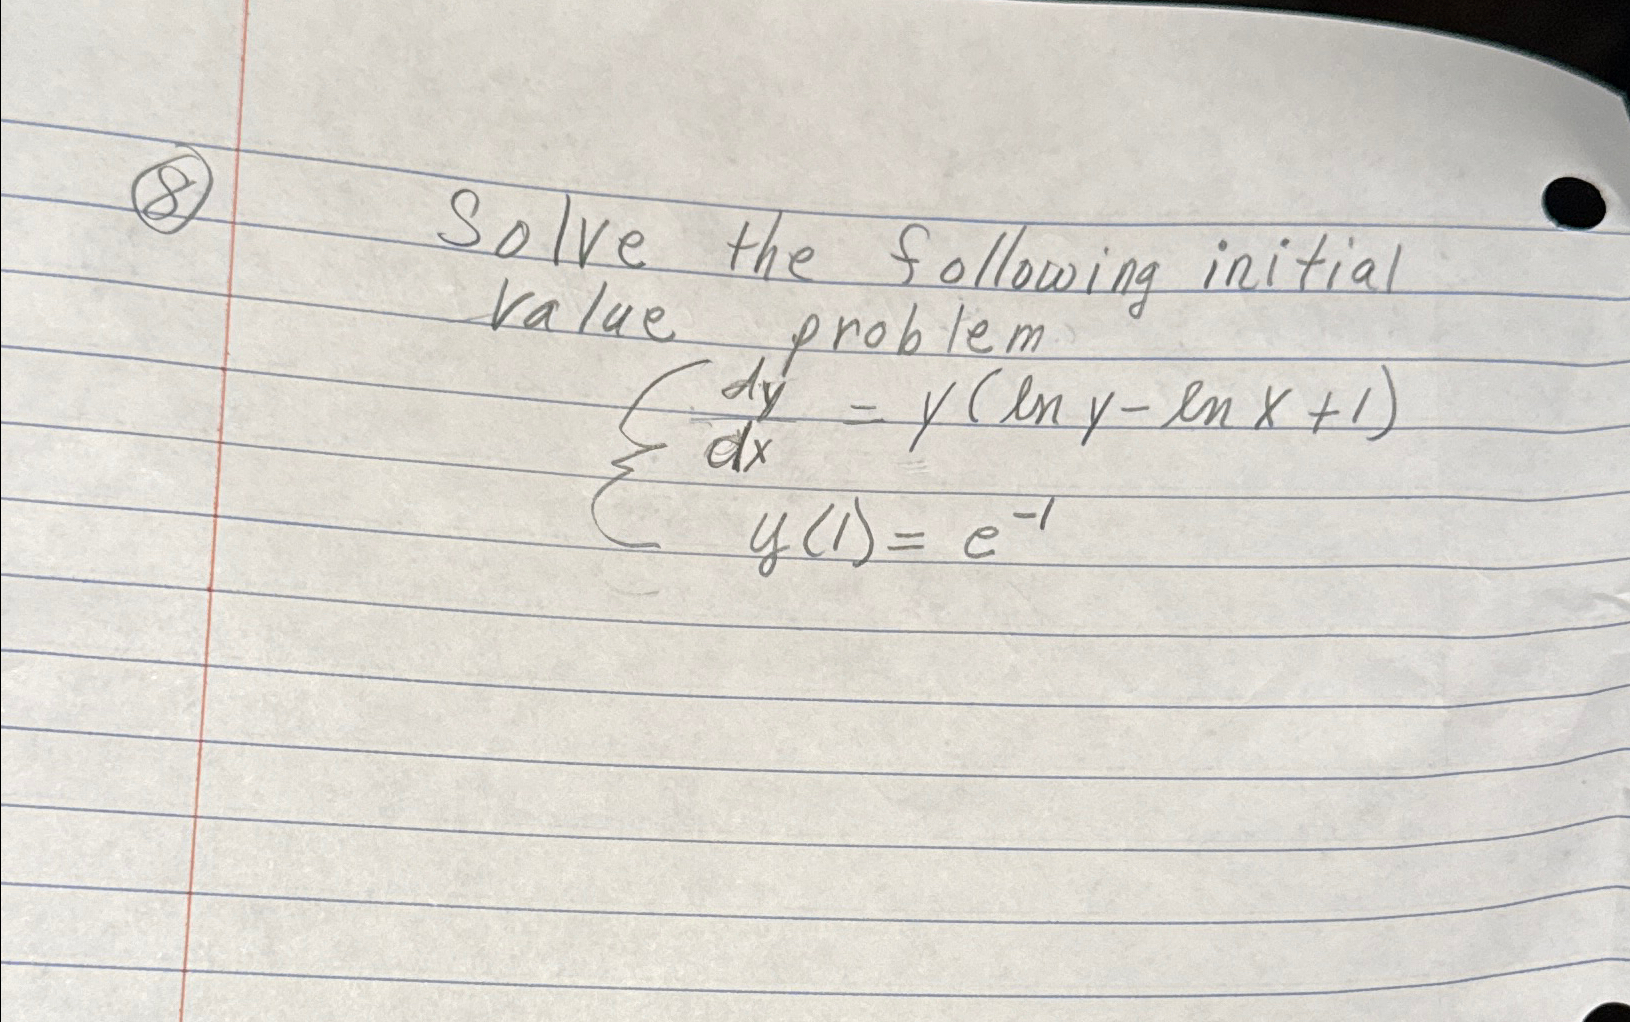 ⑧ Solve the following initial
value problem
{ dy/dx = y(ln y - ln x + 1)
y(1) = e^-1